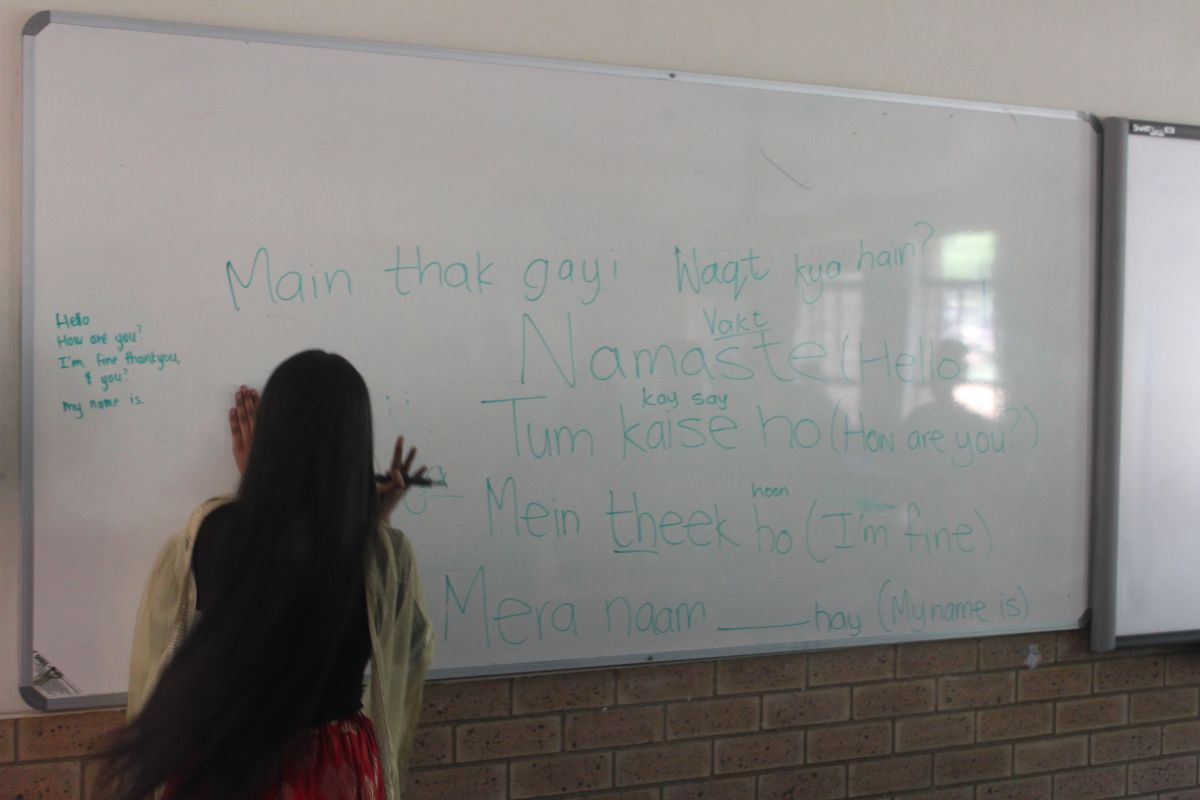 Main thak gayi Waqt kya hain?
Vakt
Namaste (Hello
kay say
Tum kaise ho (How are you?)
hoon
Mein theek ho (I'm fine)
Mera naam ____ hay (My name is)
Hello
How are you?
I'm fine thankyou,
& you?
My name is.
SMART